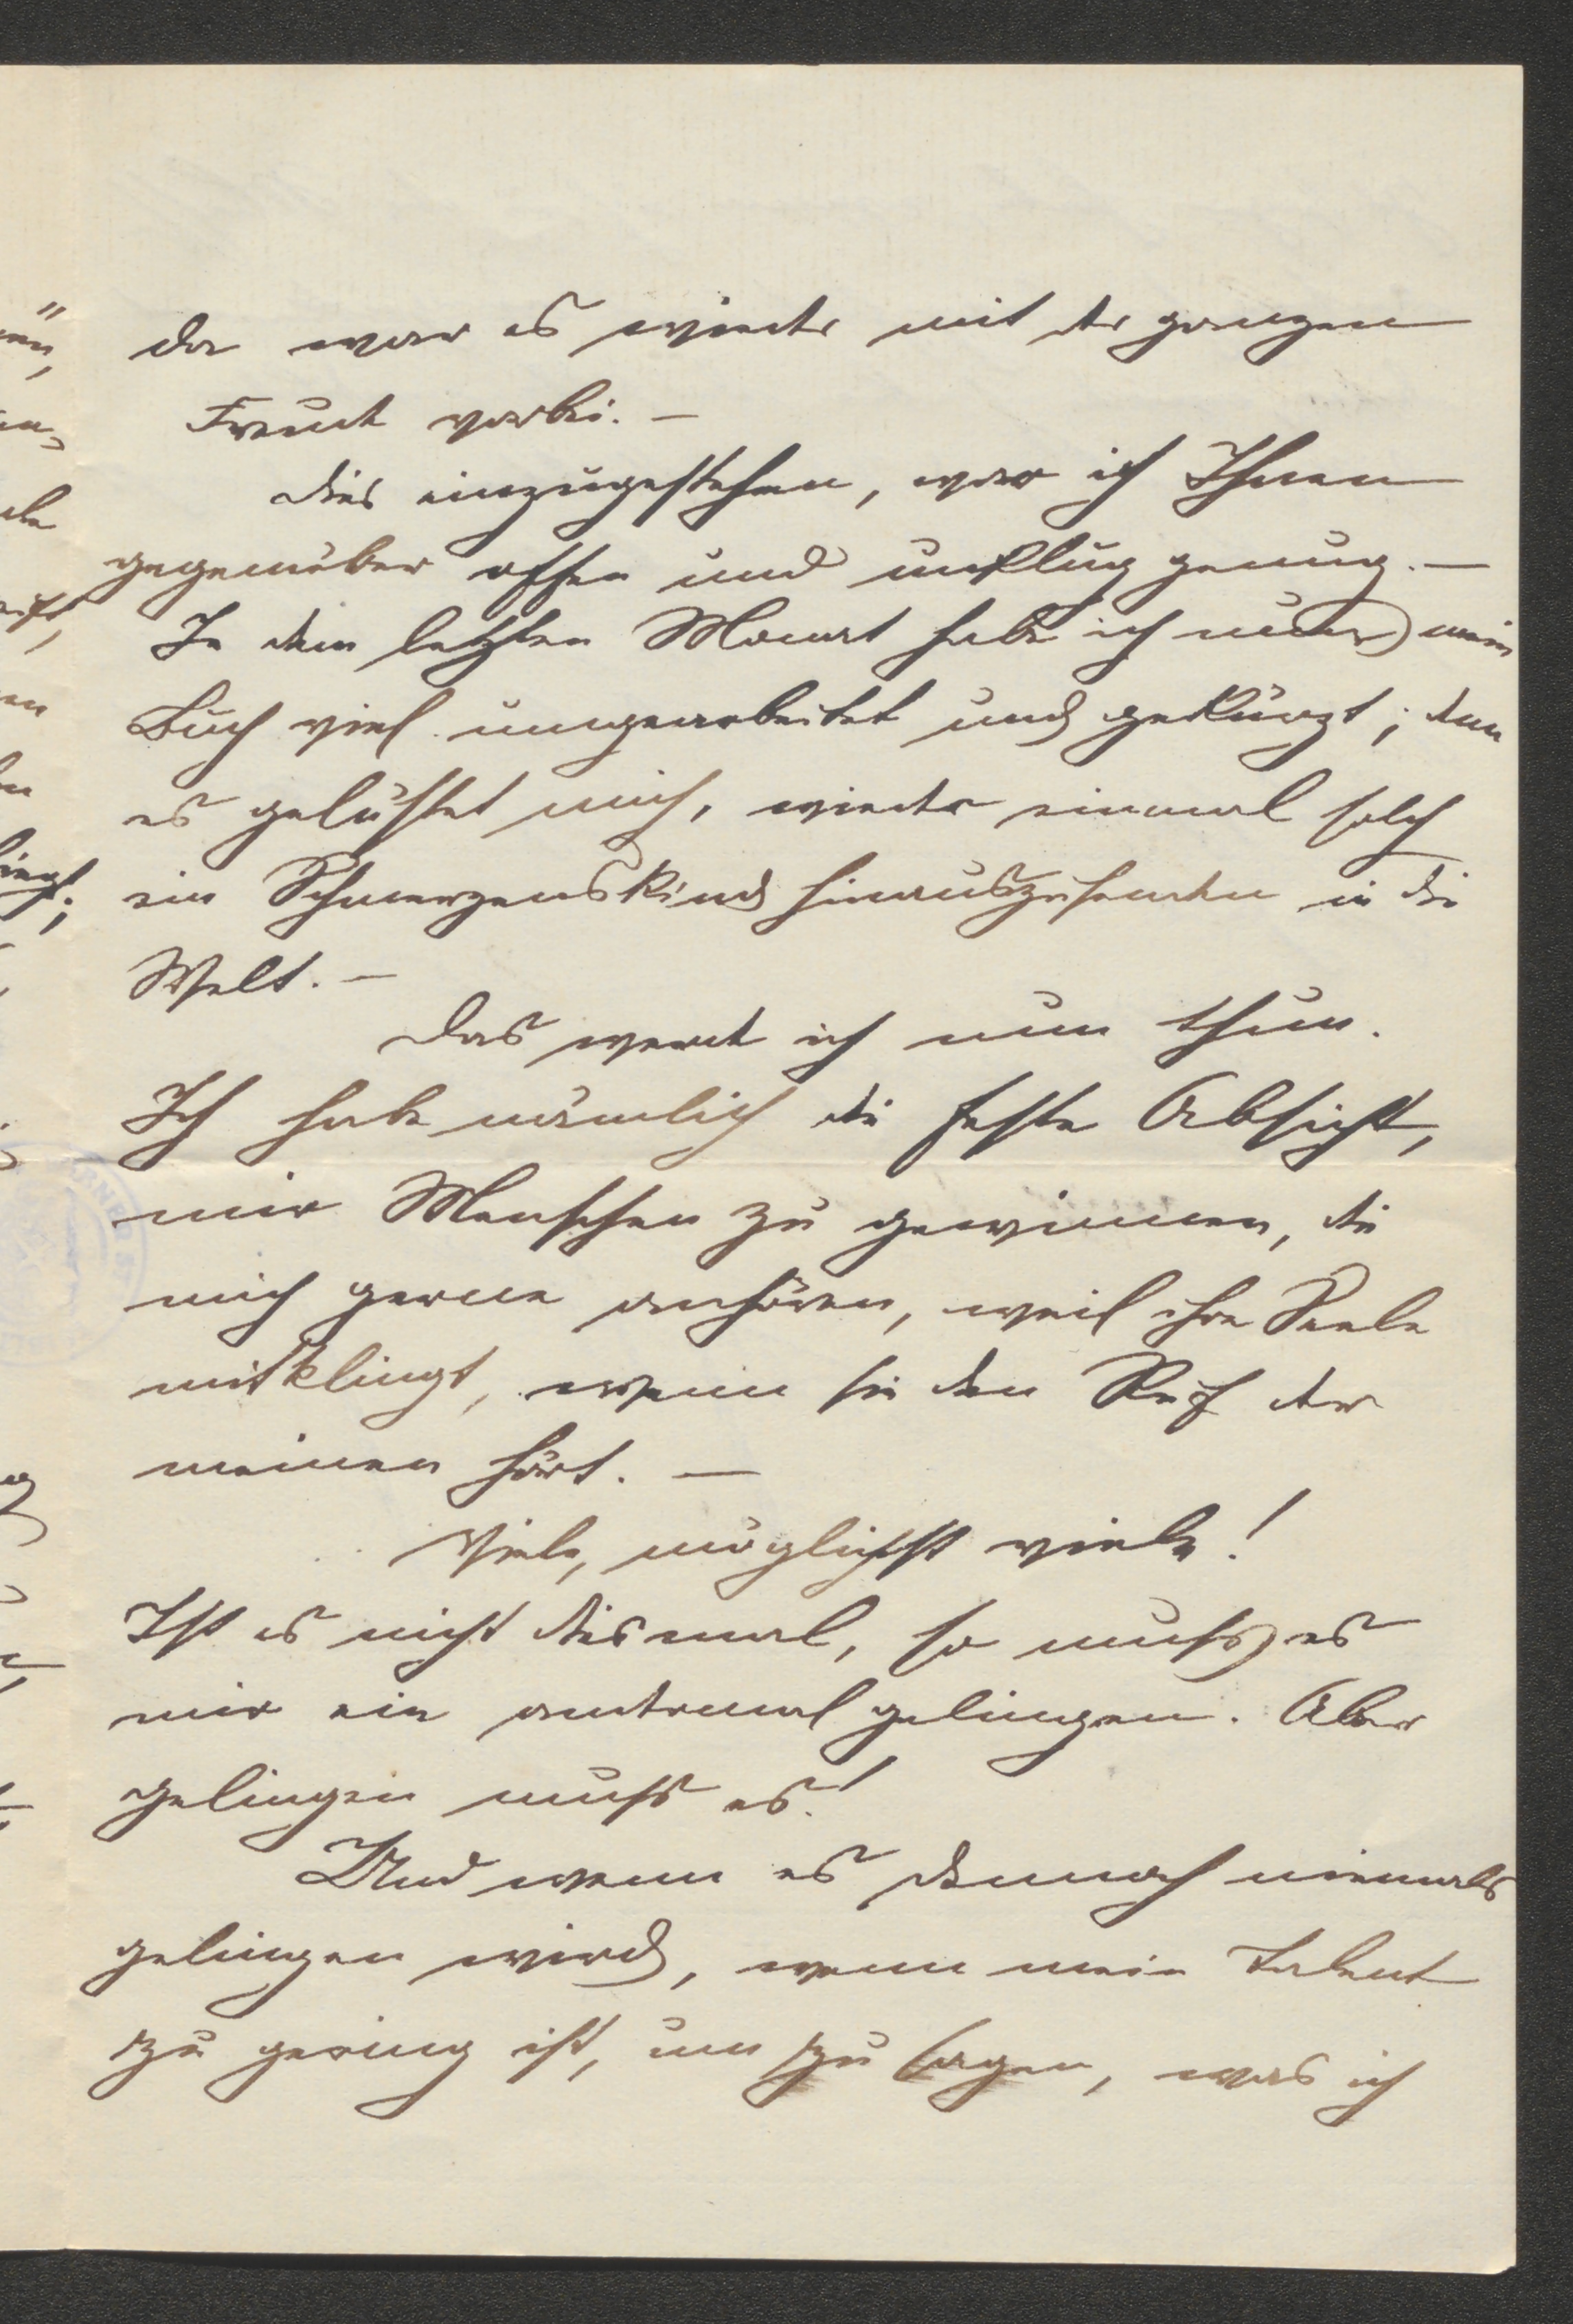 da war es wieder mit der ganzen
Freude vorbei. —
Dies einzugestehen, war ich Ihnen
gegenüber offen und unklug genug. —
In dem letzten Monat habe ich nun mein
Buch viel umgearbeitet und gekürzt; denn
es gelüstet mich, wieder einmal solch
ein Schmerzenskind hinauszusenden in die
Welt. —
Das werde ich nun thun.
Ich habe nämlich die feste Absicht,
mir Menschen zu gewinnen, die
mich gerne anhören, weil ihre Seele
mitklingt, wenn sie den Ruf der
meinen hört. —
Viele, möglichst viele!
Ist es nicht diesmal, so muß es
mir ein andermal gelingen. Aber
gelingen muß es!
Und wenn es dennoch niemals
gelingen wird, wenn mein Talent
zu gering ist, um zu sagen, was ich